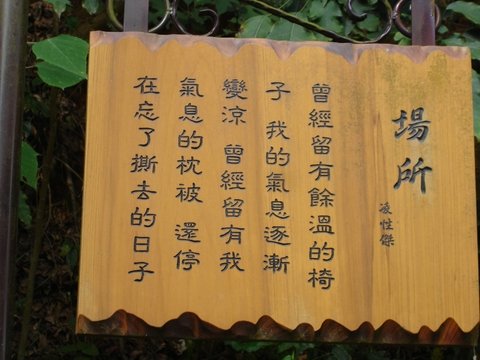 場所
凌性傑
曾經留有餘溫的椅
子 我的氣息逐漸
變涼 曾經留有我
氣息的枕被 還停
在忘了撕去的日子